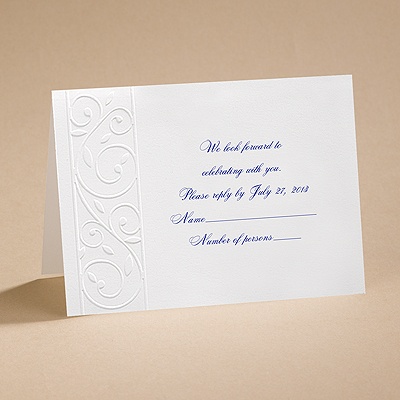 We look forward to
celebrating with you.
Please reply by July 27, 2013
Name
Number of persons